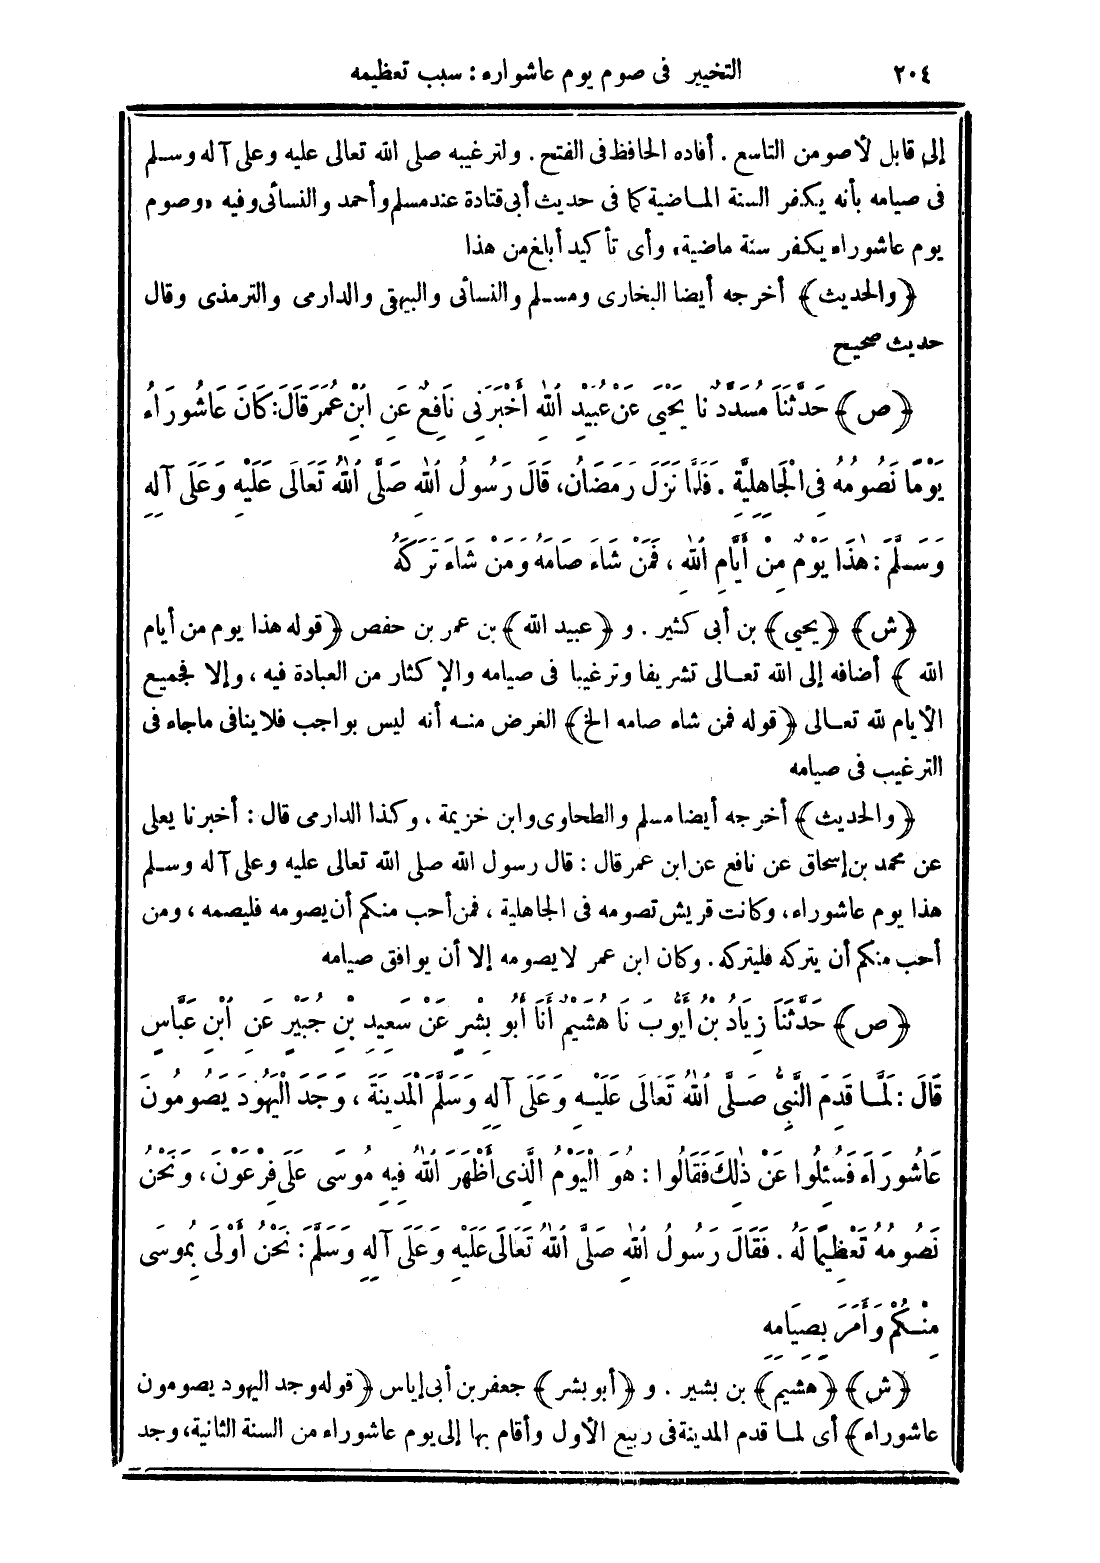 ٢٠٤ التخيير فى صوم يوم عاشوراء : سبب تعظيمه
إلى قابل لأصومن التاسع . أفاده الحافظ فى الفتح . ولترغيبه صلى الله تعالى عليه وعلى آله وسلم
فى صيامه بأنه يكفر السنة الماضية كما فى حديث أبى قتادة عند مسلم وأحمد والنسائى وفيه «وصوم
يوم عاشوراء يكفر سنة ماضية» وأى تأكيد أبلغ من هذا
﴿والحديث﴾ أخرجه أيضا البخارى ومسلم والنسائى والبيهقى والدارمى والترمذى وقال
حديث صحيح
﴿ص﴾ حَدَّثَنَا مُسَدَّدٌ نَا يَحْيَى عَنْ عُبَيْدِ اللهِ أَخْبَرَنِى نَافِعٌ عَنِ ابْنِ عُمَرَ قَالَ: كَانَ عَاشُورَاءُ
يَوْمًا نَصُومُهُ فِى الْجَاهِلِيَّةِ . فَلَمَّا نَزَلَ رَمَضَانُ، قَالَ رَسُولُ اللهِ صَلَّى اللهُ تَعَالَى عَلَيْهِ وَعَلَى آلِهِ
وَسَلَّمَ : هٰذَا يَوْمٌ مِنْ أَيَّامِ اللهِ ، فَمَنْ شَاءَ صَامَهُ وَمَنْ شَاءَ تَرَكَهُ
﴿ش﴾ ﴿يحيى﴾ بن أبى كثير . و ﴿عبيد الله﴾ بن عمر بن حفص ﴿قوله هذا يوم من أيام
الله﴾ أضافه إلى الله تعالى تشريفا وترغيبا فى صيامه والإكثار من العبادة فيه ، وإلا فجميع
الأيام لله تعالى ﴿قوله فمن شاء صامه الخ﴾ الغرض منه أنه ليس بواجب فلا ينافى ماجاء فى
الترغيب فى صيامه
﴿والحديث﴾ أخرجه أيضا مسلم والطحاوى وابن خزيمة . وكذا الدارمى قال : أخبرنا يعلى
عن محمد بن إسحاق عن نافع عن ابن عمر قال : قال رسول الله صلى الله تعالى عليه وعلى آله وسلم
هذا يوم عاشوراء، وكانت قريش تصومه فى الجاهلية ، فمن أحب منكم أن يصومه فليصمه ، ومن
أحب منكم أن يتركه فليتركه . وكان ابن عمر لا يصومه إلا أن يوافق صيامه
﴿ص﴾ حَدَّثَنَا زِيَادُ بْنُ أَيُّوبَ نَا هُشَيْمٌ أَنَا أَبُو بِشْرٍ عَنْ سَعِيدِ بْنِ جُبَيْرٍ عَنِ ابْنِ عَبَّاسٍ
قَالَ : لَمَّا قَدِمَ النَّبِىُّ صَلَّى اللهُ تَعَالَى عَلَيْهِ وَعَلَى آلِهِ وَسَلَّمَ الْمَدِينَةَ ، وَجَدَ الْيَهُودَ يَصُومُونَ
عَاشُورَاءَ فَسُئِلُوا عَنْ ذٰلِكَ فَقَالُوا : هُوَ الْيَوْمُ الَّذِى أَظْهَرَ اللهُ فِيهِ مُوسَى عَلَى فِرْعَوْنَ ، وَنَحْنُ
نَصُومُهُ تَعْظِيمًا لَهُ . فَقَالَ رَسُولُ اللهِ صَلَّى اللهُ تَعَالَى عَلَيْهِ وَعَلَى آلِهِ وَسَلَّمَ : نَحْنُ أَوْلَى بِمُوسَى
مِنْكُمْ وَأَمَرَ بِصِيَامِهِ
﴿ش﴾ ﴿هشيم﴾ بن بشير . و ﴿أبو بشر﴾ جعفر بن أبى إياس ﴿قوله وجد اليهود يصومون
عاشوراء﴾ أى لما قدم المدينة فى ربيع الأول وأقام بها إلى يوم عاشوراء من السنة الثانية، وجد